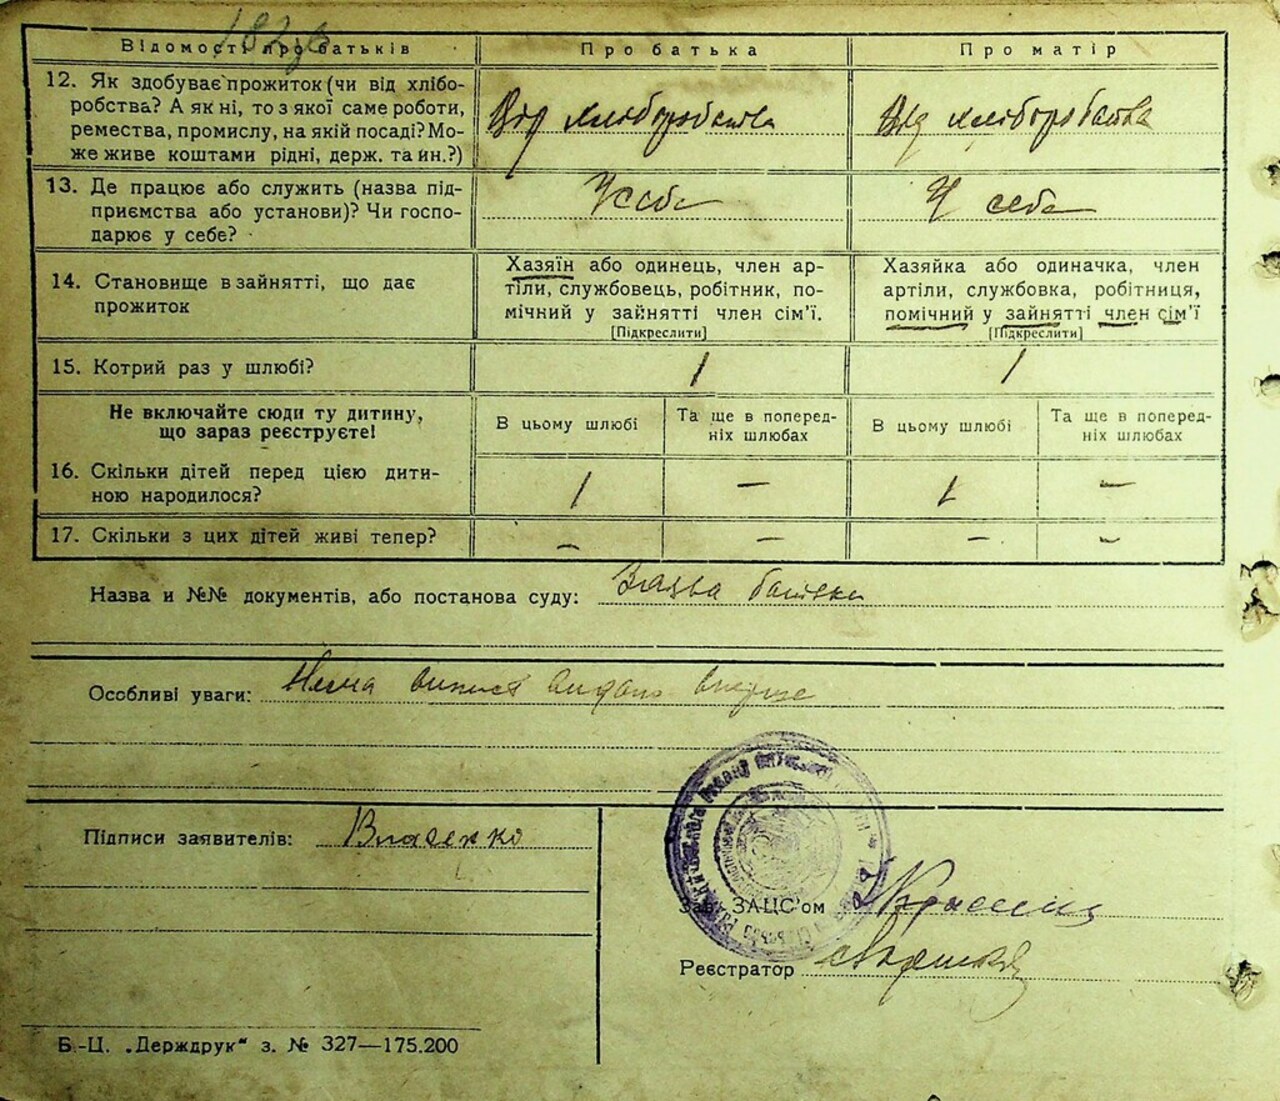 Відомості про батьків
Про батька
Про матір
12. Як здобуває прожиток (чи від хлібо-
робства? А як ні, то з якої саме роботи,
ремества, промислу, на якій посаді? Мо-
же живе коштами рідні, держ. та ин.?)
Від хліборобства
Від хліборобства
13. Де працює або служить (назва під-
приємства або установи)? Чи госпо-
дарює у себе?
У себе
У себе
14. Становище в зайнятті, що дає
прожиток
Хазяїн або одинець, член ар-
тіли, службовець, робітник, по-
мічний у зайнятті член сім'ї.
[Підкреслити]
Хазяйка або одиначка, член
артіли, службовка, робітниця,
помічний у зайнятті член сім'ї
[Підкреслити]
15. Котрий раз у шлюбі?
1
1
Не включайте сюди ту дитину,
що зараз реєструєте!
В цьому шлюбі
Та ще в поперед-
ніх шлюбах
В цьому шлюбі
Та ще в поперед-
ніх шлюбах
16. Скільки дітей перед цією дити-
ною народилося?
1
—
1
—
17. Скільки з цих дітей живі тепер?
—
—
—
—
Назва и №№ документів, або постанова суду: батька
Особливі уваги: Нема випис видано вперше
Підписи заявителів: Власенко
Зав. ЗАЦС'ом
Реєстратор
Б.-Ц. „Держдрук" з. № 327—175.200